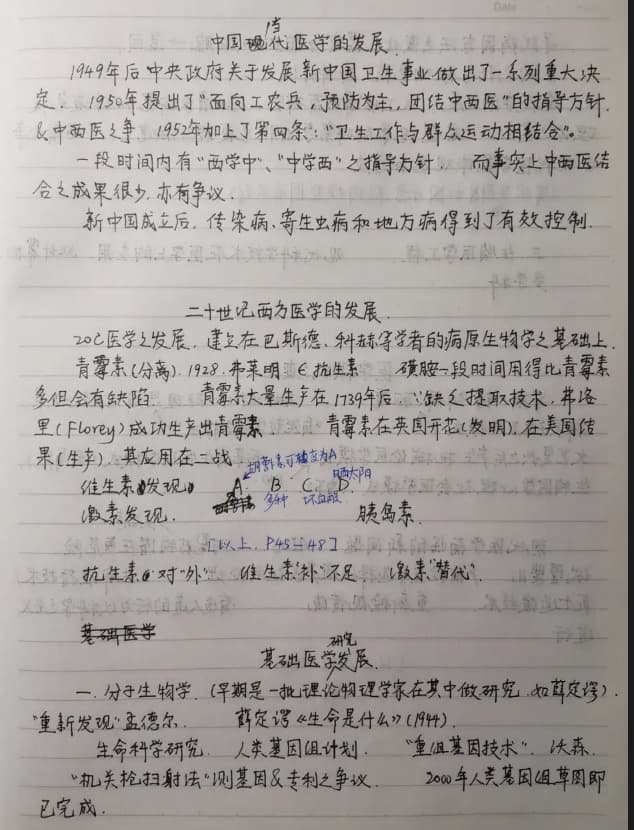 中国当代医学的发展.
1949年后中央政府关于发展新中国卫生事业做出了一系列重大决
定. 1950年提出了"面向工农兵,预防为主,团结中西医"的指导方针.
&中西医之争 1952年加上了第四条:"卫生工作与群众运动相结合"。
一段时间内有"西学中"、"中学西"之指导方针. 而事实上中西医结
合之成果很少,亦有争议.
新中国成立后,传染病、寄生虫病和地方病得到了有效控制.
二十世纪西方医学的发展.
20C医学之发展,建立在巴斯德、科赫等学者的病原生物学之基础上.
青霉素(分离). 1928.弗莱明 ∈抗生素. 磺胺一段时间用得比青霉素
多但会有缺陷. 青霉素大量生产在1739年后.∵缺乏提取技术,弗洛
里(Florey)成功生产出青霉素. 青霉素在英国开花(发明),在美国结
果(生产).其应用在二战.
胡萝卜素可转变为A
维生素发现 A. B. C. D. 晒太阳
多种 坏血酸
激素发现. 胰岛素.
[以上,P45-48]
抗生素"对"外". 维生素"补"不足 激素"替代".
基础医学
基础医学研究发展.
一.分子生物学.(早期是一批理论物理学家在其中做研究.如薛定谔).
"重新发现"孟德尔. 薛定谔《生命是什么》(1944).
生命科学研究. 人类基因组计划. "重组基因技术". 沃森.
"机关枪扫射法"测基因&专利之争议. 2000年人类基因组草图即
已完成.